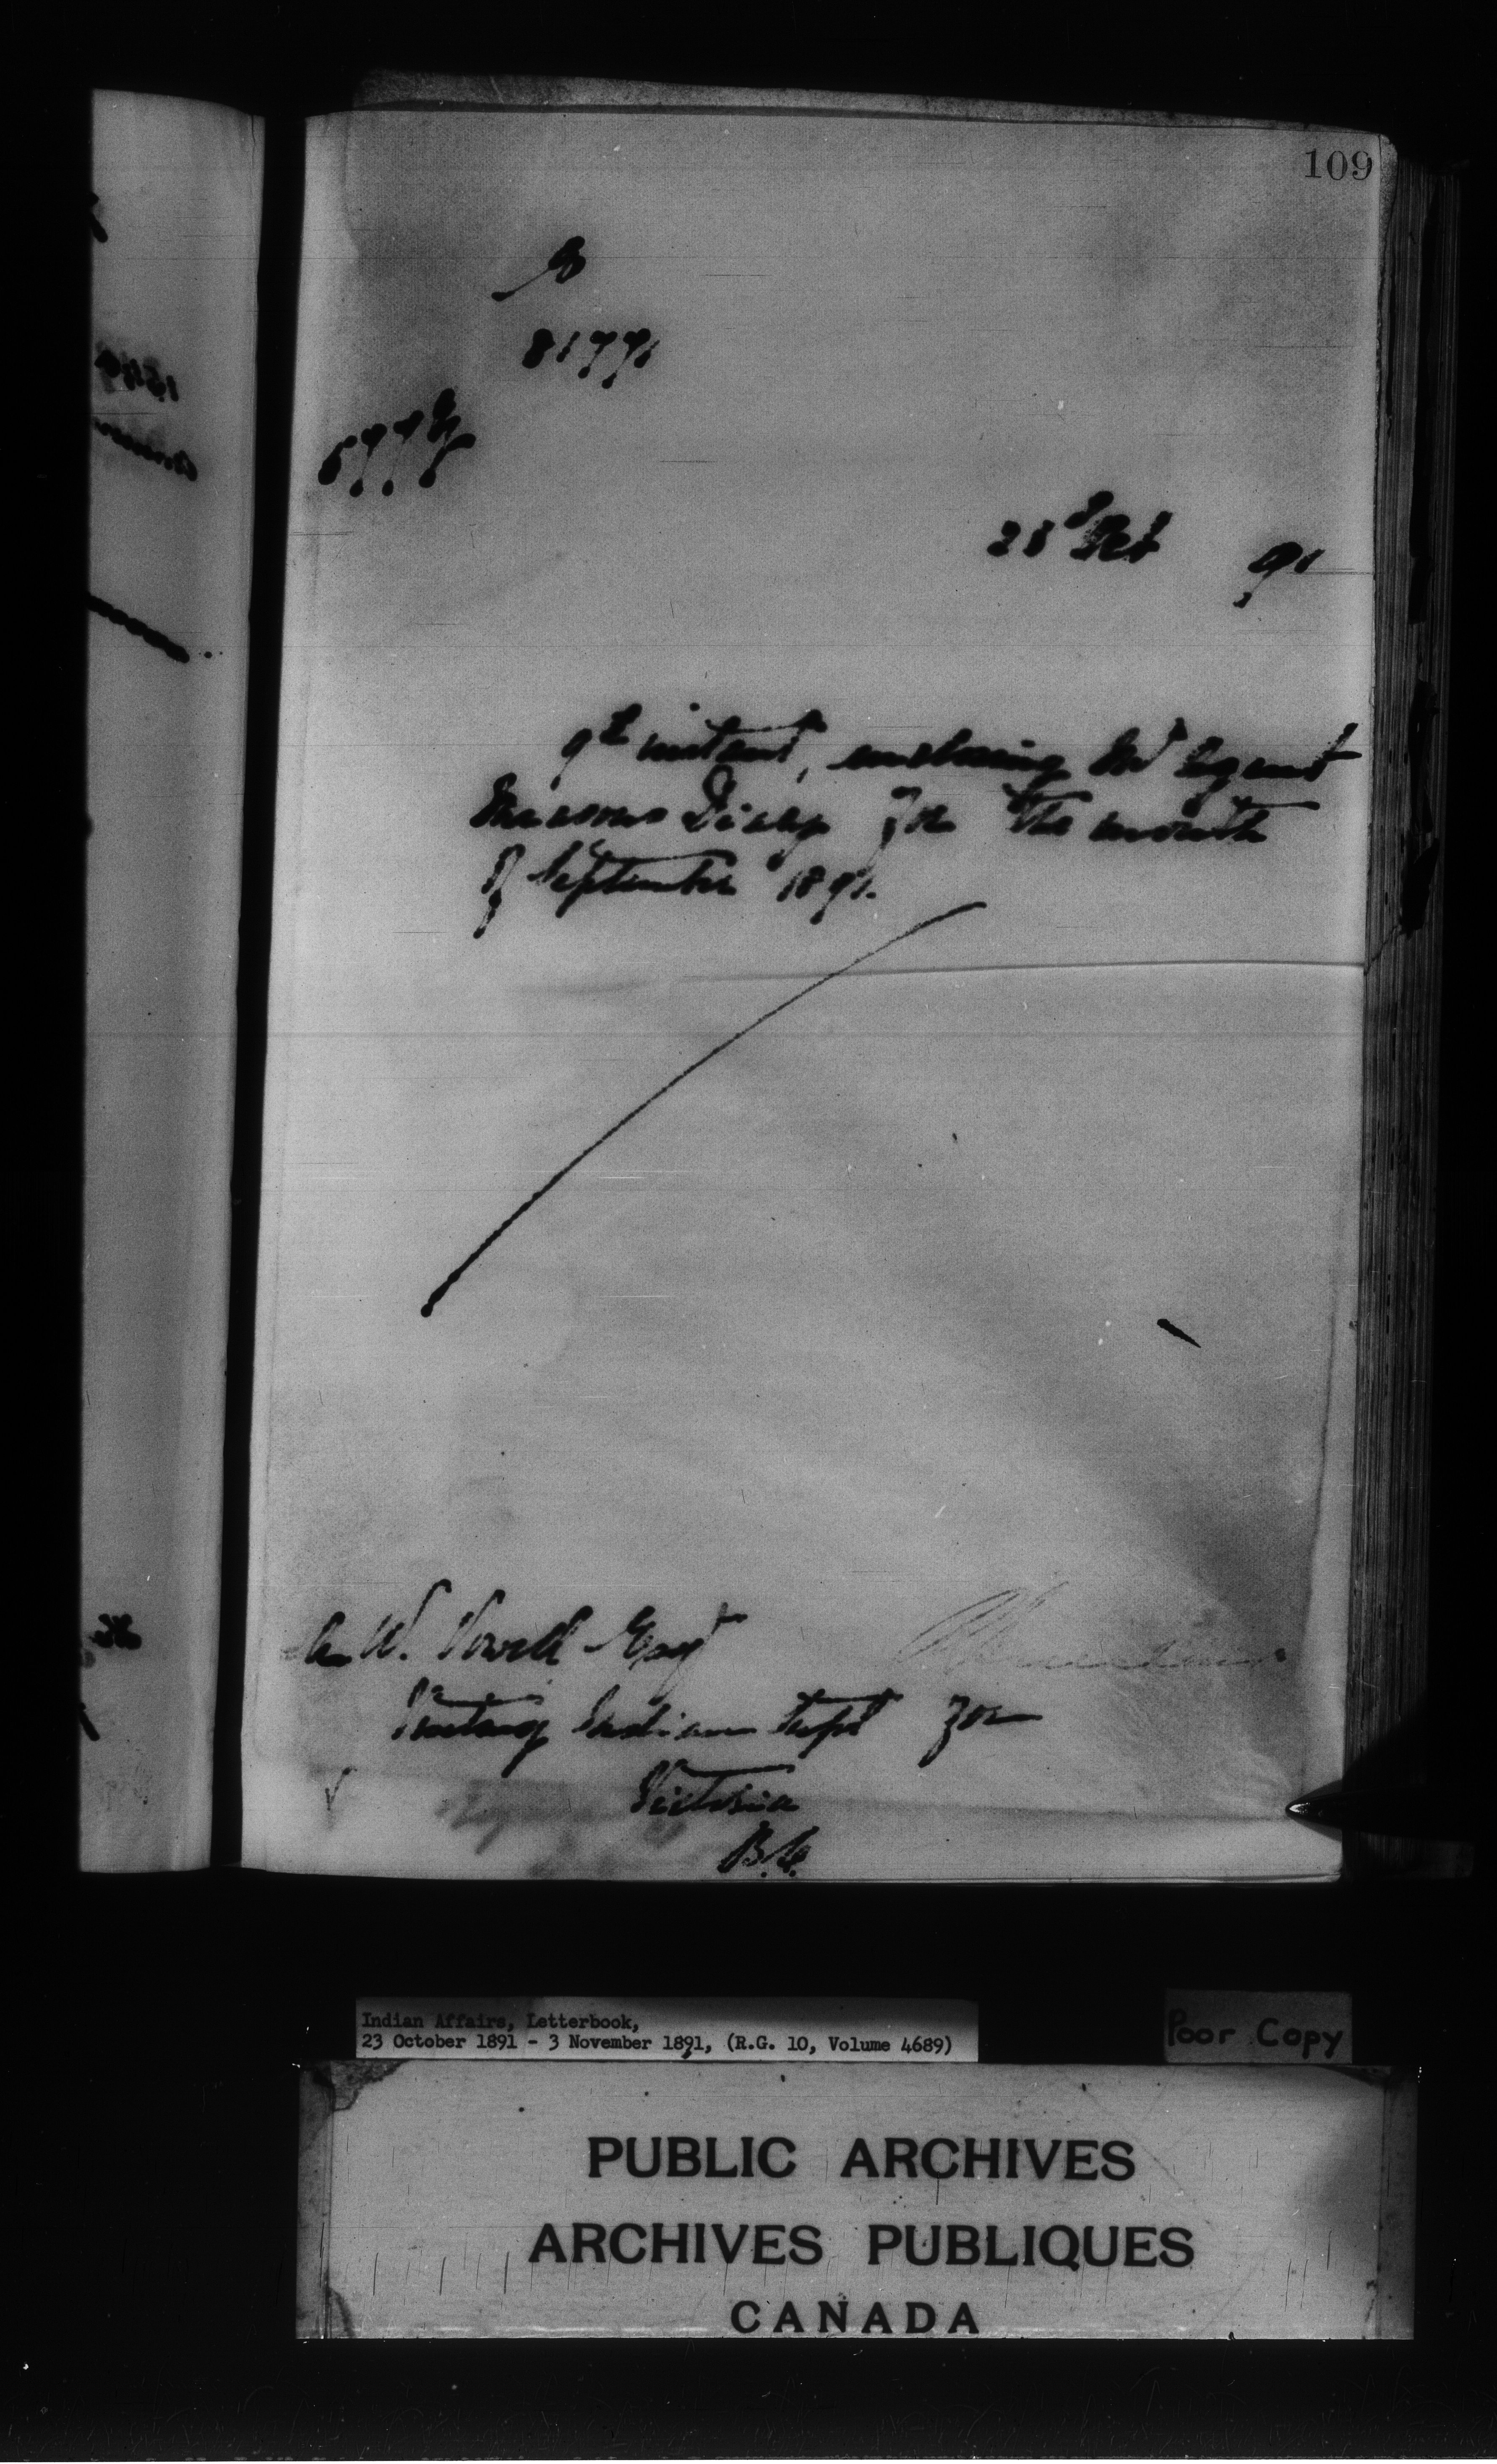 109
81791
28 Oct 91
9th instant, enclosing Mr Agent
Diary for the month
of September 1891.
A. W. Vowell Esqr
Visiting Indian Supt for
Victoria
B.C.
Indian Affairs, Letterbook,
23 October 1891 - 3 November 1891, (R.G. 10, Volume 4689)
Poor Copy
PUBLIC ARCHIVES
ARCHIVES PUBLIQUES
CANADA